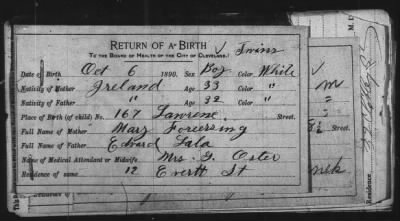 RETURN OF A BIRTH
TO THE BOARD OF HEALTH OF THE CITY OF CLEVELAND. √ Twins
Date of Birth Oct 6 1890. Sex Boy Color White
Nativity of Mother Ireland Age 33 Color "
Nativity of Father " Age 32 Color "
Place of Birth (of child) No. 167 Street.
Full Name of Mother Mary
Full Name of Father Edward
Name of Medical Attendant or Midwife, Mrs. Oster
Residence of same 12 Everett St
√
m
"
"
Street.
Residence